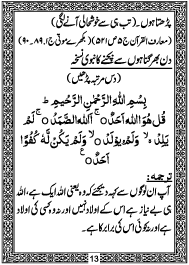 پڑھتا ہوں۔ (تب ہی سے خوشحالی آنے لگی)
(معارف القرآن ج ۵ ص ۵۲۱) (بکھرے موتی ج ۱، ۸۹۔۹۰)
دن بھر گناہوں سے بچنے کا نبوی نسخہ
(دس مرتبہ پڑھیں)
بِسْمِ اللّٰهِ الرَّحْمٰنِ الرَّحِيْمِ
قُلْ هُوَ اللّٰهُ اَحَدٌ ۚ اَللّٰهُ الصَّمَدُ ۚ لَمْ
يَلِدْ ۙ وَلَمْ يُوْلَدْ ۙ وَلَمْ يَكُنْ لَّهٗ كُفُوًا
اَحَدٌ
ترجمہ:
آپ ان لوگوں سے کہہ دیجئے کہ وہ یعنی اللہ ایک ہے، اللہ
ہی بے نیاز ہے اس کے اولاد نہیں اور نہ وہ کسی کی اولاد
ہے اور نہ کوئی اس کی برابر کا ہے۔
13